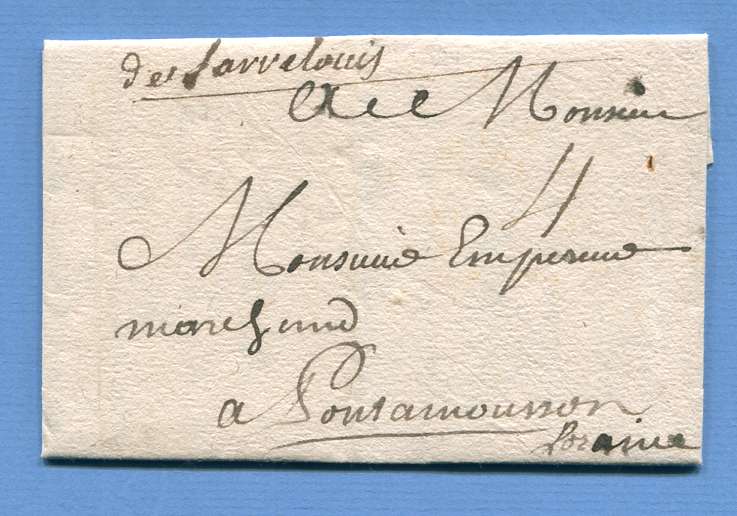 de Sarrelouis
A Monsieur
4
Monsieur Empereur
marchand
a Pontamousson
Loraine